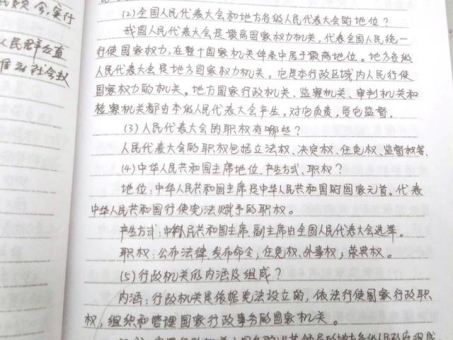 人民群众直
(2)全国人民代表大会和地方各级人民代表大会的地位?
我国人民代表大会是最高国家权力机关,代表全国人民统一
行使国家权力,在整个国家机关体系中居于最高地位。地方各级
人民代表大会是地方国家权力机关,它是本行政区域内人民行使
国家权力的机关。地方国家行政机关、监察机关、审判机关和
检察机关都由本级人民代表大会产生,对它负责,受它监督.
(3)人民代表大会的职权有哪些?
人民代表大会的职权包括立法权、决定权、任免权、监督权等.
(4)中华人民共和国主席地位、产生方式、职权?
地位:中华人民共和国主席是中华人民共和国的国家元首。代表
中华人民共和国行使宪法赋予的职权。
产生方式:中华人民共和国主席、副主席由全国人民代表大会选举。
职权:公布法律、发布命令,任免权、外事权,荣典权。
(5)行政机关的内涵及组成?
内涵:行政机关是依据宪法设立的,依法行使国家行政职
权,组织和管理国家行政事务的国家机关。